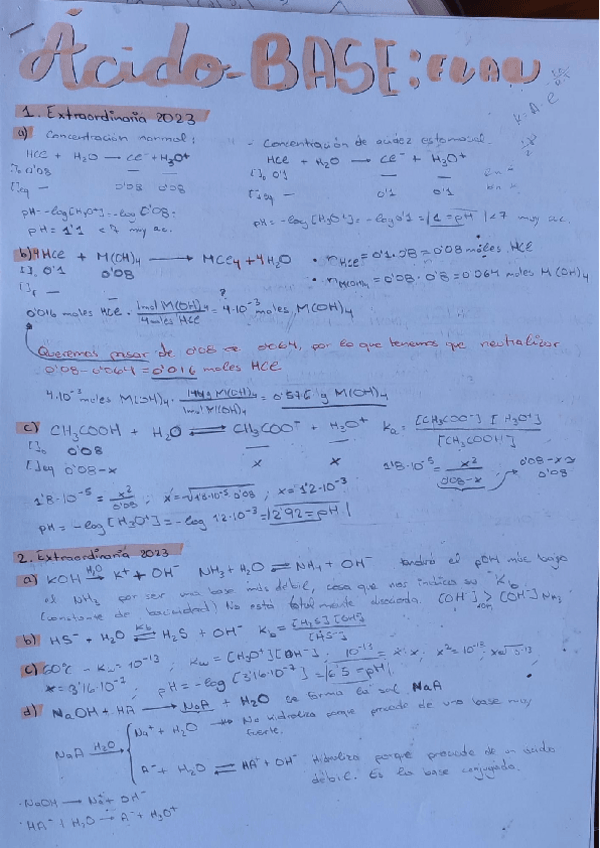 Ácido-BASE: EVAU
1. Extraordinaria 2023
a) Concentración normal:
HCl + H₂O → Cl⁻ + H₃O⁺
[ ]₀ 0'08 — —
[ ]eq — 0'08 0'08
pH = -log[H₃O⁺] = -log 0'08:
pH = 1'1 < 7 muy ac.
- Concentración de acidez estomacal.
HCl + H₂O → Cl⁻ + H₃O⁺
[ ]₀ 0'1 — —
[ ]eq — 0'1 0'1
pH = -log[H₃O⁺] = -log 0'1 = 1 = pH < 7 muy ac.
b) 4HCl + M(OH)₄ → MCl₄ + 4H₂O
[ ]₀ 0'1 0'08
[ ]f — —
• nHCl = 0'1 · 0'8 = 0'08 moles HCl
• nM(OH)₄ = 0'08 · 0'8 = 0'064 moles M(OH)₄
0'016 moles HCl · 1mol M(OH)₄ / 4moles HCl = 4·10⁻³ moles M(OH)₄
?
Queremos pasar de 0'08 a 0'064, por lo que tenemos que neutralizar
0'08 - 0'064 = 0'016 moles HCl
4·10⁻³ moles M(OH)₄ · 144g M(OH)₄ / 1mol M(OH)₄ = 0'576 g M(OH)₄
c) CH₃COOH + H₂O ⇌ CH₃COO⁻ + H₃O⁺ Ka = [CH₃COO⁻] [H₃O⁺] / [CH₃COOH]
[ ]₀ 0'08 — —
[ ]eq 0'08-x x x
1'8·10⁻⁵ = x² / 0'08-x 0'08-x ≈ 0'08
1'8·10⁻⁵ = x² / 0'08 ; x = √1'8·10⁻⁵·0'08 ; x = 1'2·10⁻³
pH = -log [H₃O⁺] = -log 1'2·10⁻³ = 2'92 = pH
2. Extraordinaria 2023
a) KOH H₂O → K⁺ + OH⁻ NH₃ + H₂O ⇌ NH₄ + OH⁻ tendrá el pOH más bajo
el NH₃ por ser una base más débil, cosa que nos indica su Kb
(constante de basicidad) No está totalmente disociada. [OH⁻] > [OH⁻] NH₃
b) HS⁻ + H₂O Kb ⇌ H₂S + OH⁻ Kb = [H₂S] [OH⁻] / [HS⁻]
c) 60°C - Kw = 10⁻¹³ ; Kw = [H₃O⁺] [OH⁻] ; 10⁻¹³ = x · x ; x² = 10⁻¹³ ;
x = 3'16·10⁻⁷ ; pH = -log (3'16·10⁻⁷) = 6'5 = pH
d) NaOH + HA → NaA + H₂O se forma la sal NaA
NaA H₂O →
Na⁺ + H₂O → No hidroliza porque procede de una base muy
fuerte.
A⁻ + H₂O ⇌ HA + OH⁻ Hidroliza porque procede de un ácido
débil. Es la base conjugada.
· NaOH → Na⁺ + OH⁻
· HA + H₂O → A⁻ + H₃O⁺